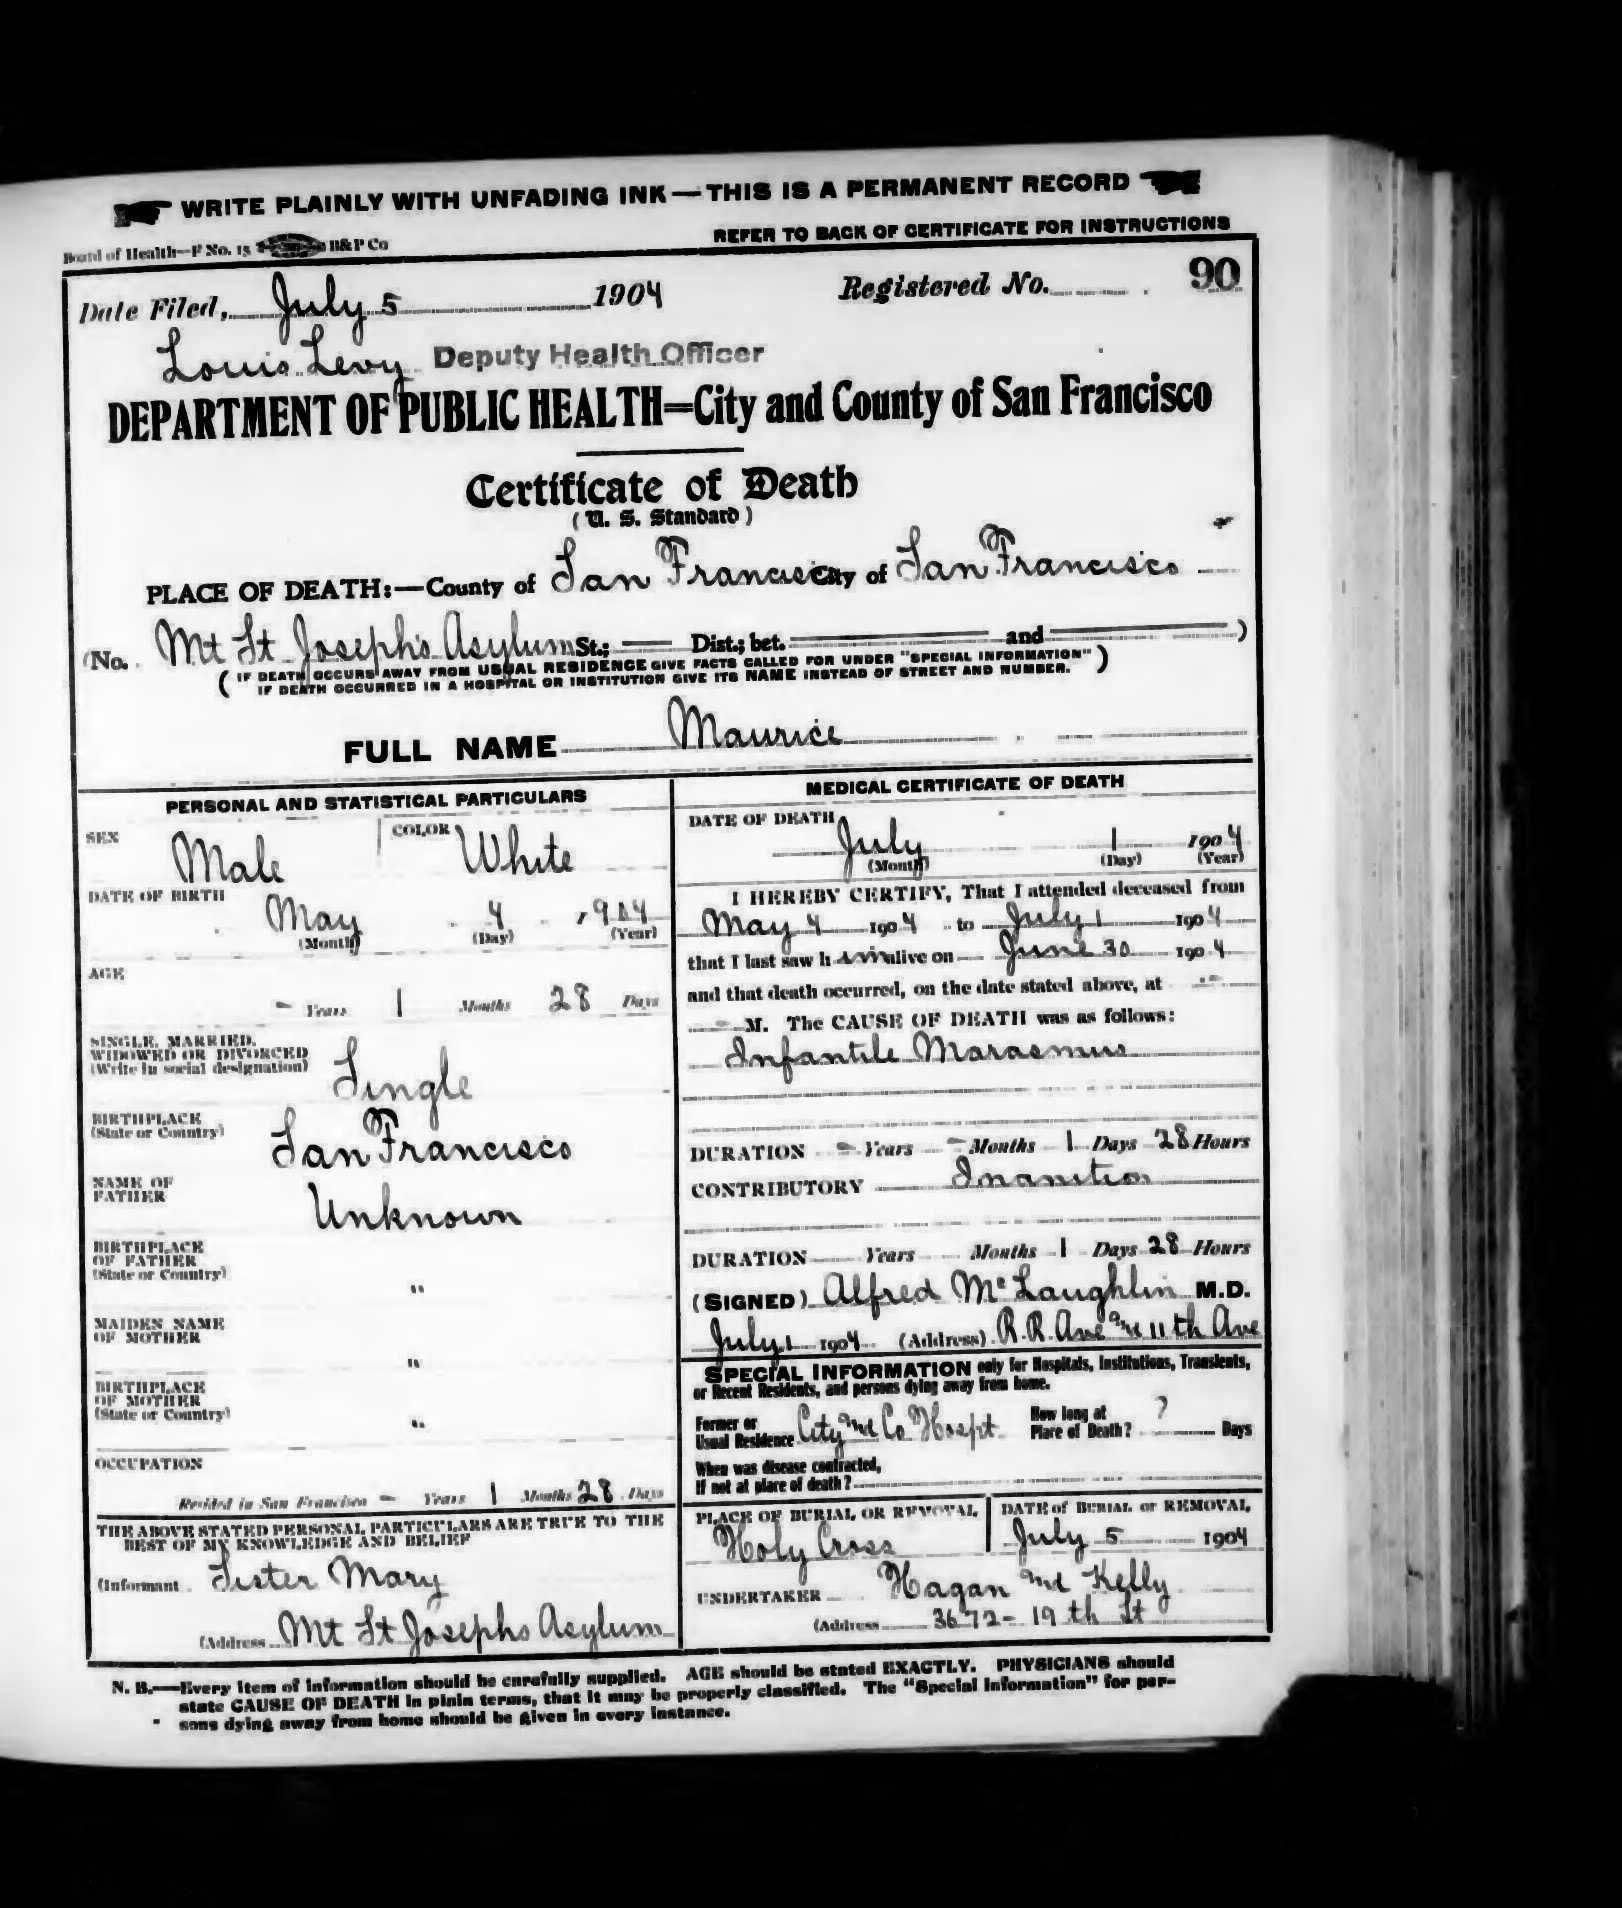 WRITE PLAINLY WITH UNFADING INK — THIS IS A PERMANENT RECORD
Board of Health—F No. 15 B&P Co
REFER TO BACK OF CERTIFICATE FOR INSTRUCTIONS
Date Filed, July 5 1904 Registered No. 90
Louis Levy Deputy Health Officer
DEPARTMENT OF PUBLIC HEALTH=City and County of San Francisco
Certificate of Death
(U. S. Standard)
PLACE OF DEATH:—County of San Francisco City of San Francisco
(No. Mt St Joseph's Asylum St.; Dist.; bet. and )
( IF DEATH OCCURS AWAY FROM USUAL RESIDENCE GIVE FACTS CALLED FOR UNDER "SPECIAL INFORMATION"
IF DEATH OCCURRED IN A HOSPITAL OR INSTITUTION GIVE ITS NAME INSTEAD OF STREET AND NUMBER. )
FULL NAME Maurice
PERSONAL AND STATISTICAL PARTICULARS
SEX Male COLOR White
DATE OF BIRTH
May 4 1904
(Month) (Day) (Year)
AGE
– Years 1 Months 28 Days
SINGLE, MARRIED,
WIDOWED OR DIVORCED
(Write in social designation) Single
BIRTHPLACE
(State or Country) San Francisco
NAME OF
FATHER Unknown
BIRTHPLACE
OF FATHER
(State or Country) "
MAIDEN NAME
OF MOTHER "
BIRTHPLACE
OF MOTHER
(State or Country) "
OCCUPATION
Resided in San Francisco – Years 1 Months 28 Days
THE ABOVE STATED PERSONAL PARTICULARS ARE TRUE TO THE
BEST OF MY KNOWLEDGE AND BELIEF
(Informant Sister Mary
(Address Mt St Josephs Asylum
MEDICAL CERTIFICATE OF DEATH
DATE OF DEATH
July 1 1904
(Month) (Day) (Year)
I HEREBY CERTIFY, That I attended deceased from
May 4 1904 to July 1 1904
that I last saw him alive on June 30 1904
and that death occurred, on the date stated above, at –
– M. The CAUSE OF DEATH was as follows:
Infantile Marasmus
DURATION – Years – Months 1 Days 28 Hours
CONTRIBUTORY Inanition
DURATION Years Months 1 Days 28 Hours
(SIGNED) Alfred McLaughlin M.D.
July 1 1904 (Address) R.R. Ave and 11th Ave
SPECIAL INFORMATION only for Hospitals, Institutions, Transients,
or Recent Residents, and persons dying away from home.
Former or
Usual Residence City and Co Hospt
How long at
Place of Death? ? Days
When was disease contracted,
If not at place of death?
PLACE OF BURIAL OR REMOVAL
Holy Cross
DATE of BURIAL or REMOVAL
July 5 1904
UNDERTAKER Hagan and Kelly
(Address 3672 - 19th St
N. B.—Every item of information should be carefully supplied. AGE should be stated EXACTLY. PHYSICIANS should
state CAUSE OF DEATH in plain terms, that it may be properly classified. The "Special Information" for per-
sons dying away from home should be given in every instance.